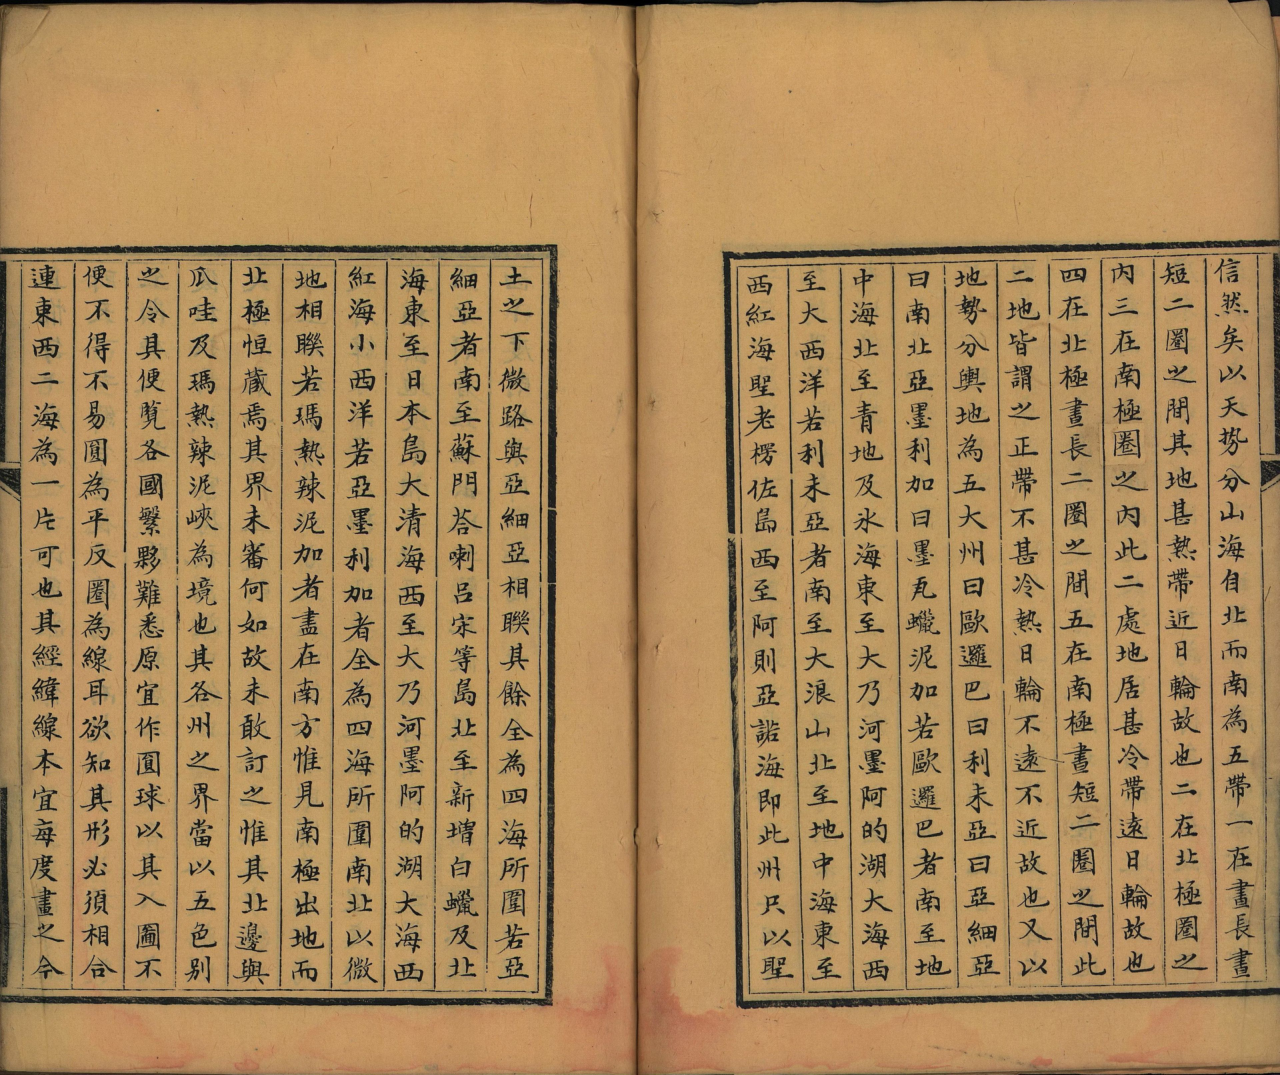 信然矣以天势分山海自北而南為五帶一在晝長晝
短二圈之間其地甚熱帶近日輪故也二在北極圈之
内三在南極圈之内此二處地居甚冷帶遠日輪故也
四在北極晝長二圈之間五在南極晝短二圈之間此
二地皆謂之正帶不甚冷熱日輪不遠不近故也又以
地勢分輿地為五大州曰歐邏巴曰利未亞曰亞細亞
曰南北亞墨利加曰墨瓦蠟泥加若歐邏巴者南至地
中海北至青地及氷海東至大乃河墨阿的湖大海西
至大西洋若利未亞者南至大浪山北至地中海東至
西紅海聖老楞佐島西至阿則亞諾海即此州只以聖
土之下微路與亞細亞相聯其餘全為四海所圍若亞
細亞者南至蘇門荅喇呂宋等島北至新增白蠟及北
海東至日本島大清海西至大乃河墨阿的湖大海西
紅海小西洋若亞墨利加者全為四海所圍南北以微
地相聯若瑪熱辣泥加者盡在南方惟見南極出地而
北極恒藏焉其界未審何如故未敢訂之惟其北邊與
瓜哇及瑪熱辣泥峽為境也其各州之界當以五色別
之令其便覧各國繫夥難悉原宜作圎球以其入圖不
便不得不易圓為平反圈為線耳欲知其形必須相合
連東西二海為一片可也其經緯線本宜每度畫之今